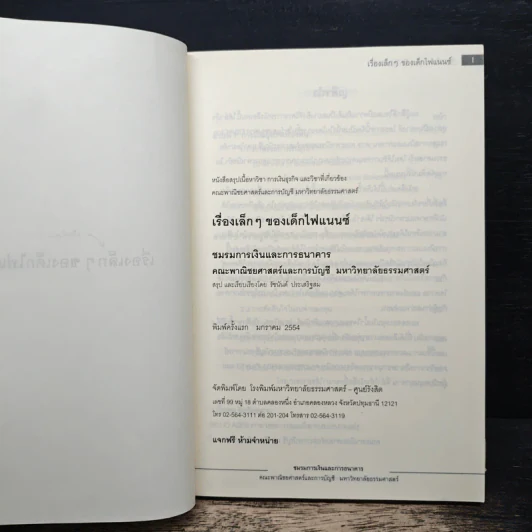 เรื่องเล็กๆ ของเด็กไฟแนนซ์ 1
หนังสือสรุปเนื้อหาวิชา การเงินธุรกิจ และวิชาที่เกี่ยวข้อง
คณะพาณิชยศาสตร์และการบัญชี มหาวิทยาลัยธรรมศาสตร์
เรื่องเล็กๆ ของเด็กไฟแนนซ์
ชมรมการเงินและการธนาคาร
คณะพาณิชยศาสตร์และการบัญชี มหาวิทยาลัยธรรมศาสตร์
สรุป และเรียบเรียงโดย รัชนันต์ ประเสริฐสม
พิมพ์ครั้งแรก มกราคม 2554
จัดพิมพ์โดย โรงพิมพ์มหาวิทยาลัยธรรมศาสตร์ – ศูนย์รังสิต
เลขที่ 99 หมู่ 18 ตำบลคลองหนึ่ง อำเภอคลองหลวง จังหวัดปทุมธานี 12121
โทร 02-564-3111 ต่อ 201-204 โทรสาร 02-564-3119
แจกฟรี ห้ามจำหน่าย
ชมรมการเงินและการธนาคาร
คณะพาณิชยศาสตร์และการบัญชี มหาวิทยาลัยธรรมศาสตร์